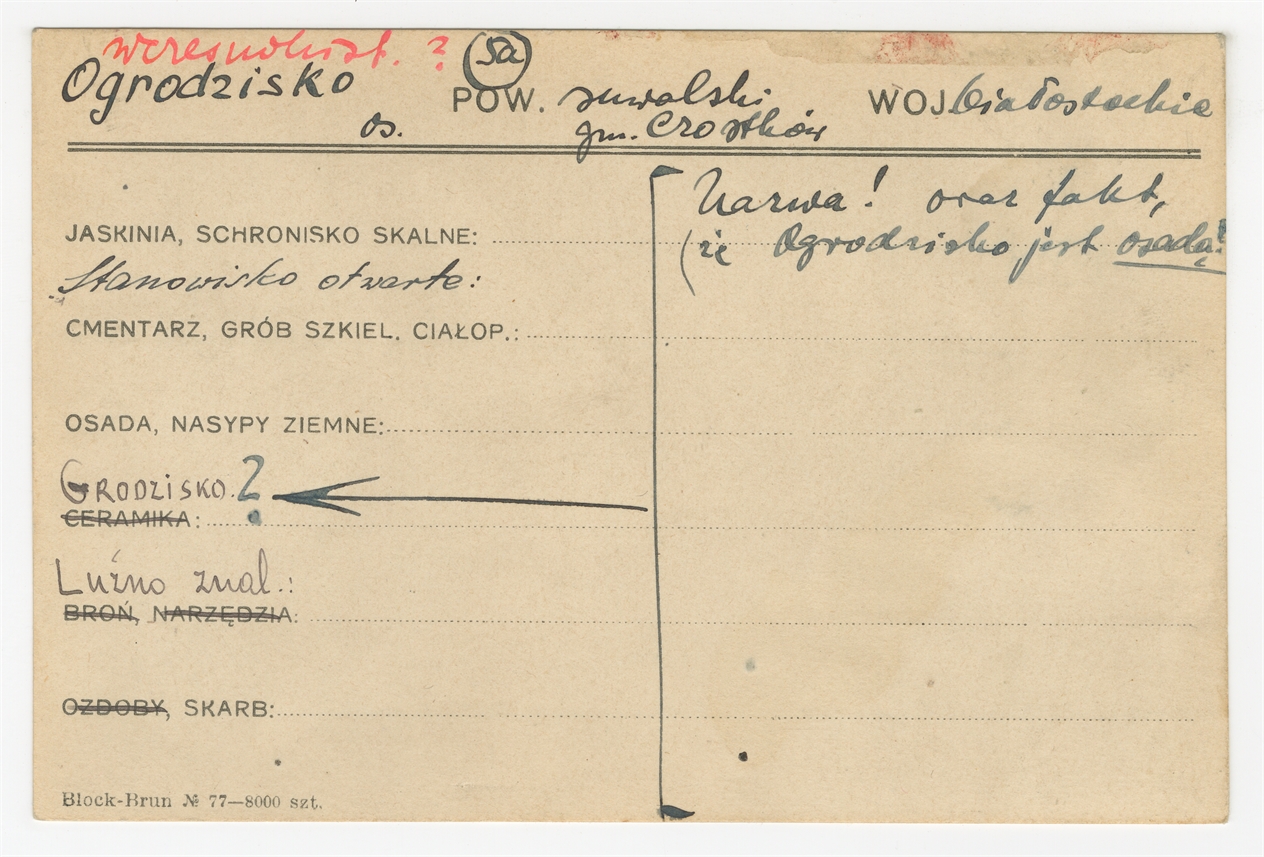 wczesnohist. ?
Ogrodzisko
5a
os.
POW. suwalski
gm. Czostków
WOJ białostockie
Nazwa! oraz fakt,
(że Ogrodzisko jest osadą!
JASKINIA, SCHRONISKO SKALNE:
Stanowisko otwarte:
CMENTARZ, GRÓB SZKIEL. CIAŁOP.:
OSADA, NASYPY ZIEMNE:
GRODZISKO. ?
CERAMIKA:
Luźno znal.:
BROŃ, NARZĘDZIA:
OZDOBY, SKARB:
Block-Brun № 77—8000 szt.